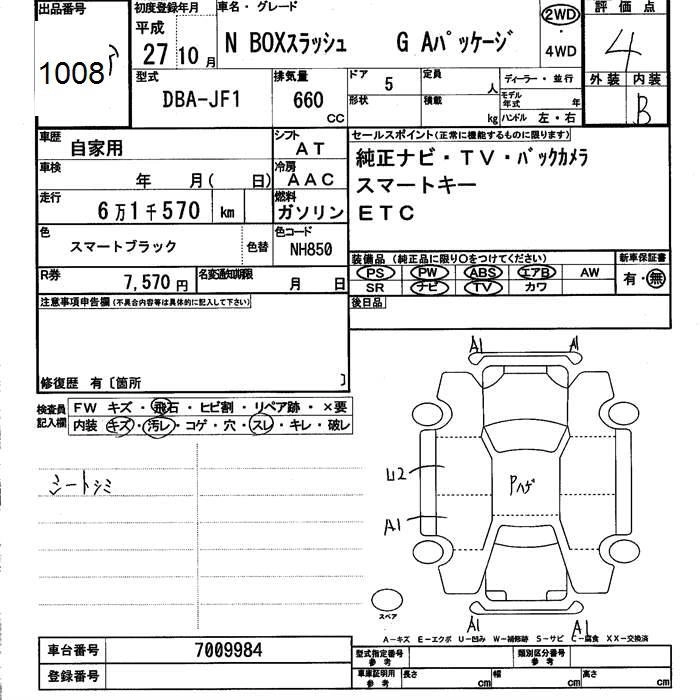 出品番号 初度登録年月 車名・グレード 評価点
平成 27 10月 N BOXスラッシュ G Aパッケージ 2WD・4WD 4
1008
型式 排気量 ドア 5 定員 人 ディーラー・並行 外装 内装
DBA-JF1 660 CC 形状 積載 kg モデル年式 年 B
ハンドル 左・右
車歴 自家用 シフト AT セールスポイント(正常に機能するものに限ります)
車検 年 月( 日) 冷房 AAC 純正ナビ・TV・バックカメラ
走行 6万1千570 km 燃料 ガソリン スマートキー
ETC
色 スマートブラック 色替 色コード NH850
装備品(純正品に限り○をつけてください) 新車保証書
PS PW ABS エアB AW 有・無
SR ナビ TV カワ
R券 7,570円 名変通知期限 月 日
注意事項申告欄(不具合内容等は具体的に記入して下さい) 後日品
修復歴 有〔箇所 〕
検査員記入欄 FW キズ・飛石・ヒビ割・リペア跡・×要
内装 キズ・汚レ・コゲ・穴・スレ・キレ・破レ
シートシミ
A1 A1
U2 Pハゲ
A1
スペア A1 A1
A-キズ E-エクボ U-凹み W-補修跡 S-サビ C-腐食 XX-交換済
車台番号 7009984 型式指定番号 参考 類別区分番号 参考
登録番号 車庫証明用 参考 長さ cm 幅 cm 高さ cm